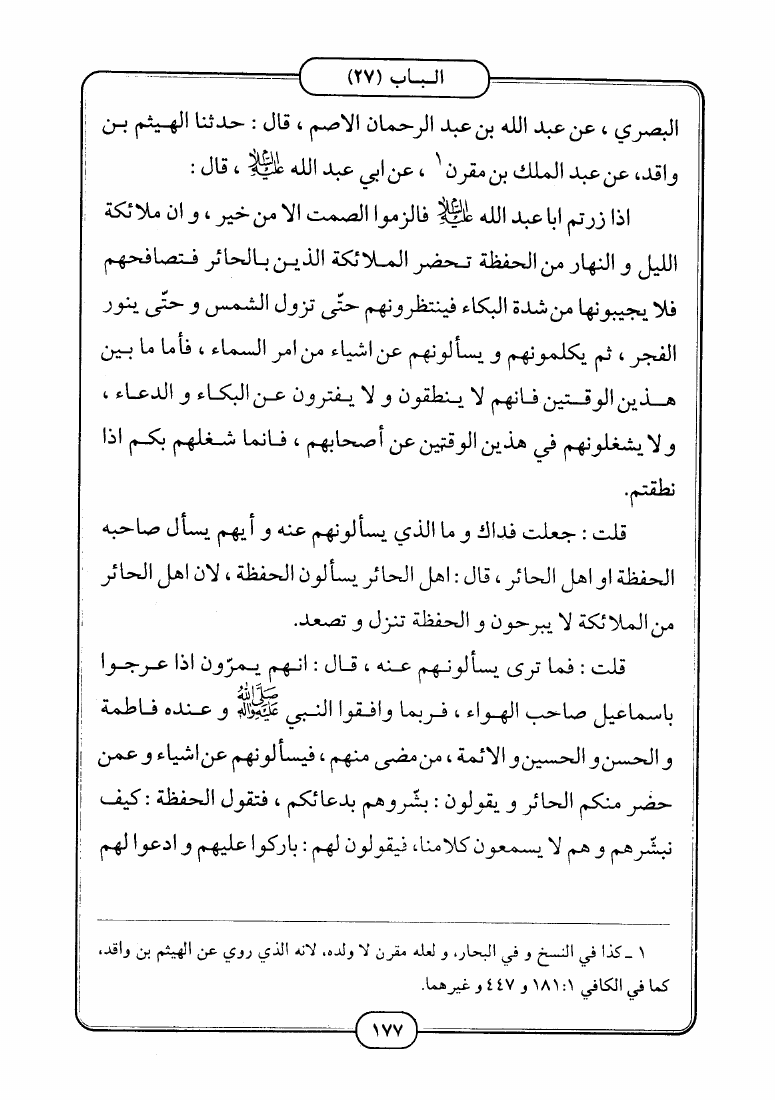 الباب (٢٧)
البصري ، عن عبد الله بن عبد الرحمان الاصم ، قال : حدثنا الهيثم بن
واقد، عن عبد الملك بن مقرن ١ ، عن ابي عبد الله عليه السلام ، قال :
اذا زرتم ابا عبد الله عليه السلام فالزموا الصمت الا من خير ، و ان ملائكة
الليل و النهار من الحفظة تحضر الملائكة الذين بالحائر فتصافحهم
فلا يجيبونها من شدة البكاء فينتظرونهم حتّى تزول الشمس و حتّى ينور
الفجر ، ثم يكلمونهم و يسألونهم عن اشياء من امر السماء ، فأما ما بين
هذين الوقتين فانهم لا ينطقون و لا يفترون عن البكاء و الدعاء ،
و لا يشغلونهم في هذين الوقتين عن أصحابهم ، فانما شغلهم بكم اذا
نطقتم.
قلت : جعلت فداك و ما الذي يسألونهم عنه و أيهم يسأل صاحبه
الحفظة او اهل الحائر ، قال : اهل الحائر يسألون الحفظة ، لان اهل الحائر
من الملائكة لا يبرحون و الحفظة تنزل و تصعد.
قلت : فما ترى يسألونهم عنه ، قال : انهم يمرّون اذا عرجوا
باسماعيل صاحب الهواء ، فربما وافقوا النبي صلى الله عليه وآله و عنده فاطمة
و الحسن و الحسين و الائمة ، من مضى منهم ، فيسألونهم عن اشياء و عمن
حضر منكم الحائر و يقولون : بشّروهم بدعائكم ، فتقول الحفظة : كيف
نبشّرهم و هم لا يسمعون كلامنا، فيقولون لهم : باركوا عليهم و ادعوا لهم
١ ـ كذا في النسخ و في البحار، و لعله مقرن لا ولده، لانه الذي روي عن الهيثم بن واقد،
كما في الكافي ١: ١٨١ و ٤٤٧ و غيرهما.
١٧٧